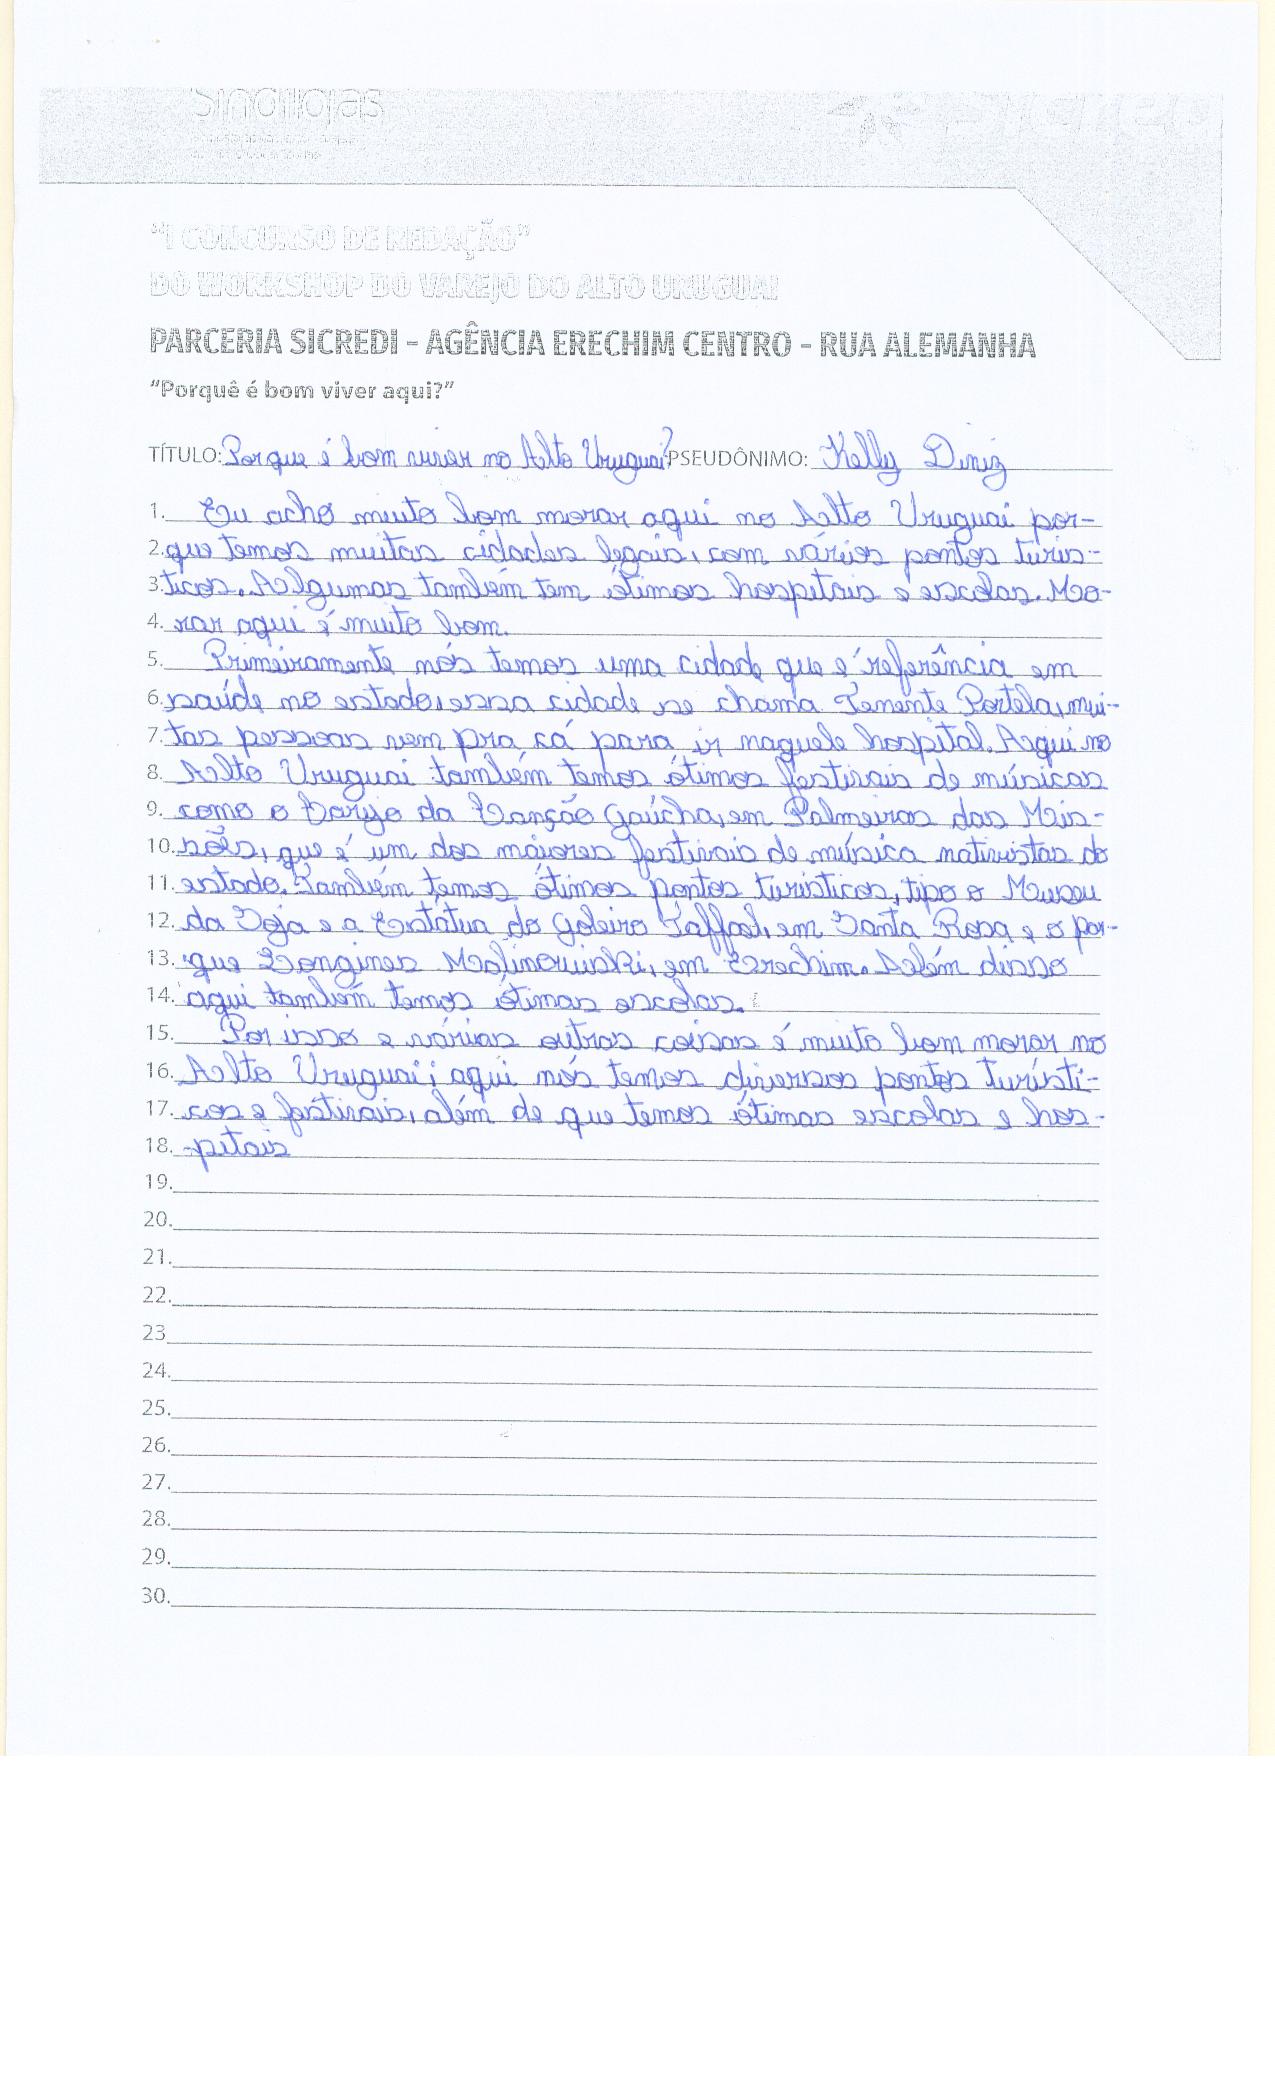 Sindilojas
Sicredi
"I CONCURSO DE REDAÇÃO"
DO WORKSHOP DO VAREJO DO ALTO URUGUAI
PARCERIA SICREDI - AGÊNCIA ERECHIM CENTRO - RUA ALEMANHA
"Porquê é bom viver aqui?"
TÍTULO: Por que é bom viver no Alto Uruguai? PSEUDÔNIMO: Kelly Diniz
1. Eu acho muito bom morar aqui no Alto Uruguai por-
2. que temos muitas cidades legais, com vários pontos turis-
3. ticos. Algumas também tem ótimos hospitais e escolas. Mo-
4. rar aqui é muito bom.
5. Primeiramente nós temos uma cidade que é referência em
6. saúde no estado, essa cidade se chama Tenente Portela, mui-
7. tas pessoas vem pra cá para ir naquele hospital. Aqui no
8. Alto Uruguai também temos ótimos festivais de músicas
9. como o Carijo da Canção Gaúcha, em Palmeiras das Mis-
10. sões, que é um dos maiores festivais de música nativistas do
11. estado. Também temos ótimos pontos turísticos, tipo o Museu
12. da Soja e a Estátua do Goleiro Taffael, em Santa Rosa e o par-
13. que Longines Malinowiski, em Erechim. Além disso
14. aqui também temos ótimas escolas.
15. Por isso e várias outras coisas é muito bom morar no
16. Alto Uruguai; aqui nós temos diversos pontos turísti-
17. cos e festivais, além de que temos ótimas escolas e hos-
18. -pitais
19.
20.
21.
22.
23
24.
25.
26.
27.
28.
29.
30.